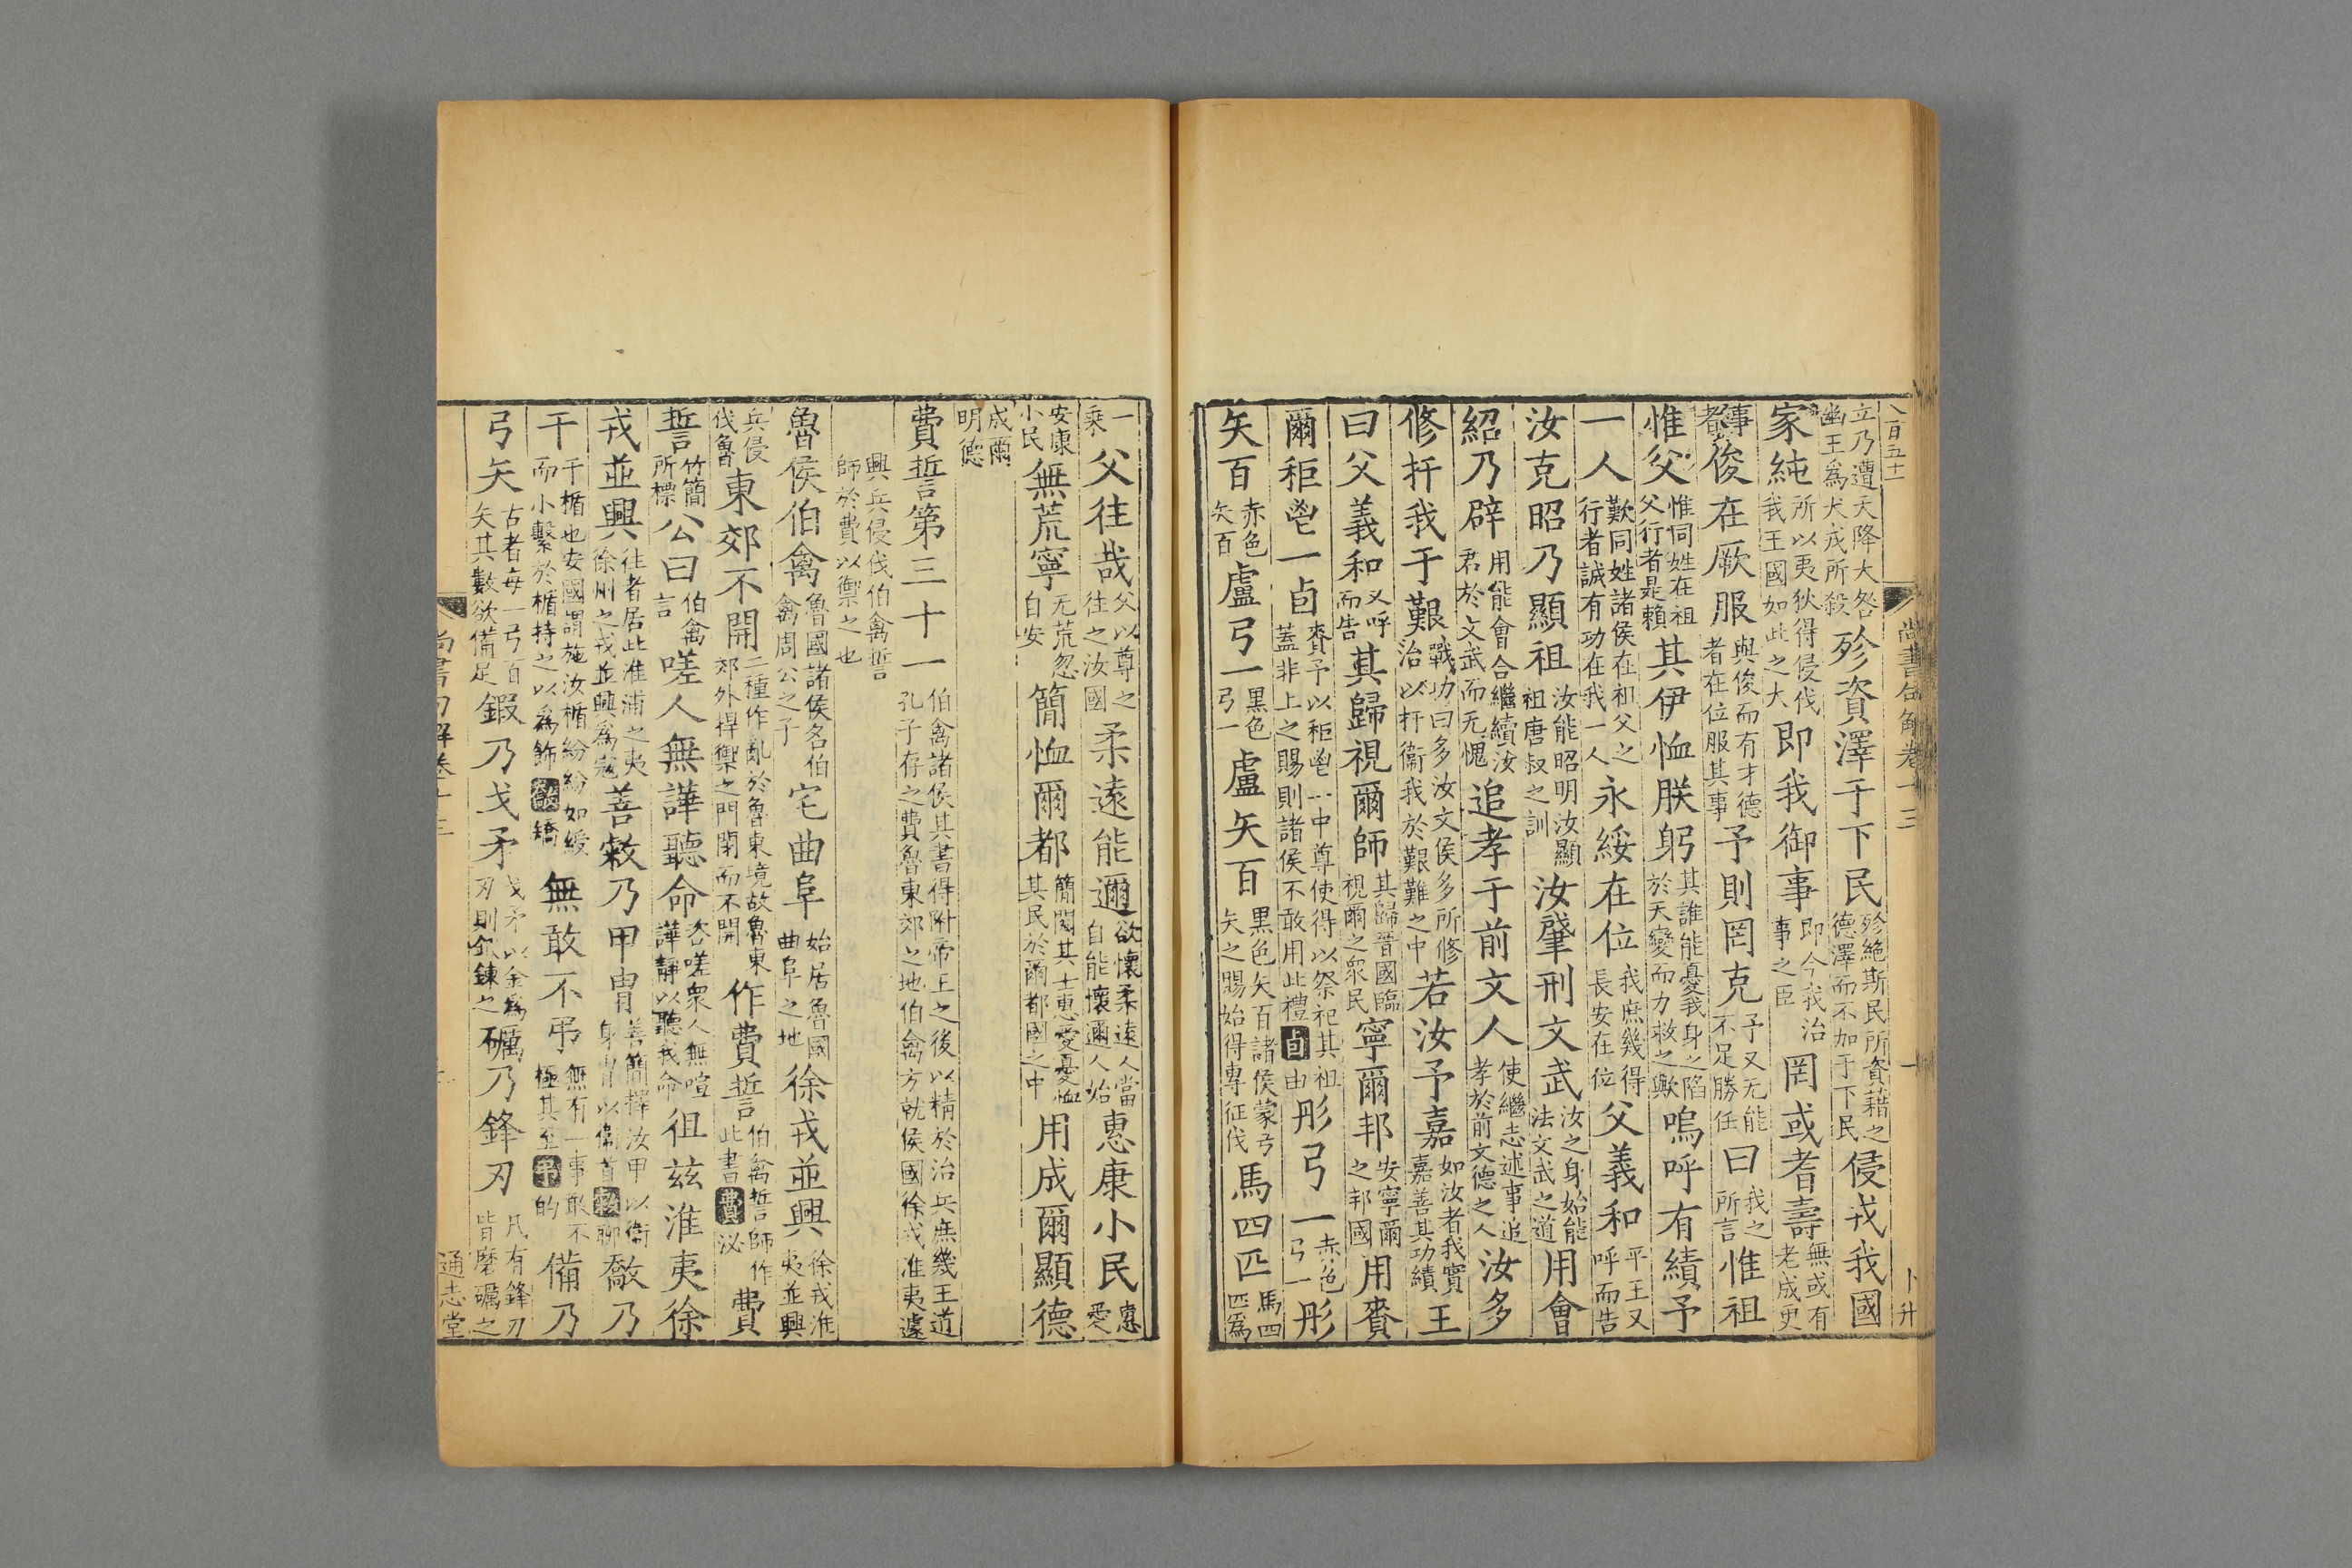 八百五十一
尚書句解卷十三
十
卜升
立乃遭天降大咎幽王爲犬戎所殺殄資澤于下民殄絶斯民所資藉之德澤而不加于下民侵戎我國
家純所以夷狄得侵伐我王國如此之大即我御事即今我治事之臣罔或耆壽無或有老成更
事者俊在厥服與俊而有才德者在位服其事予則罔克予又无能不足勝任曰我之所言惟祖
惟父惟同姓在祖父行者是賴其伊恤朕躬其誰能憂我身之陷於天變而力救之歟嗚呼有績予
一人歎同姓諸侯在祖父之行者誠有功在我一人永綏在位我庶幾得長安在位父義和平王又呼而告
汝克昭乃顯祖汝能昭明汝顯祖唐叔之訓汝肇刑文武汝之身始能法文武之道用會
紹乃辟用能會合繼續汝君於文武而无愧追孝于前文人使繼志述事追孝於前文德之人汝多
修扞我于艱戰功曰多汝文侯多所修治以扞衞我於艱難之中若汝予嘉如汝者我實嘉善其功績王
曰父義和又呼而告其歸視爾師其歸晉國臨視爾之衆民寧爾邦安寧爾之邦國用賚
爾秬鬯一卣賚予以秬鬯一中尊使得以祭祀其祖蓋非上之賜則諸侯不敢用此禮卣由彤弓一赤色弓一彤
矢百赤色矢百盧弓一黑色弓一盧矢百黑色矢百諸侯蒙弓矢之賜始得專征伐馬四匹馬四匹爲
一乘父往哉父以尊之往之汝國柔遠能邇欲懷柔遠人當自能懷邇人始惠康小民惠愛
安康小民無荒寧无荒忽自安簡恤爾都簡閱其士惠愛憂恤其民於爾都國之中用成爾顯德
成爾明德
費誓第三十一伯禽諸侯其書得附帝王之後以精於治兵庶幾王道孔子存之費魯東郊之地伯禽方就侯國徐戎淮夷遽
興兵侵伐伯禽誓師於費以禦之也
魯侯伯禽魯國諸侯名伯禽周公之子宅曲阜始居魯國曲阜之地徐戎並興徐戎淮夷並興
兵侵伐魯東郊不開二種作亂於魯東境故魯東郊外捍禦之門閉而不開作費誓伯禽誓師作此書費泌費
誓竹簡所標公曰伯禽言嗟人無譁聽命咨嗟衆人無喧譁靜以聽我命徂兹淮夷徐
戎並興往者居此淮浦之夷徐州之戎並興爲寇善敹乃甲胄善簡擇汝甲以衞身胄以衞首敹聊敿乃
干干楯也安國謂施汝楯紛紛如綬而小繫於楯持之以爲飾敿矯無敢不弔無有一事敢不極其至弔的備乃
弓矢古者每一弓百矢其數欲備足鍜乃戈矛戈矛以金爲刃則欲鍊之礪乃鋒刃凡有鋒刃皆磨礪之
尚書句解卷十三
通志堂